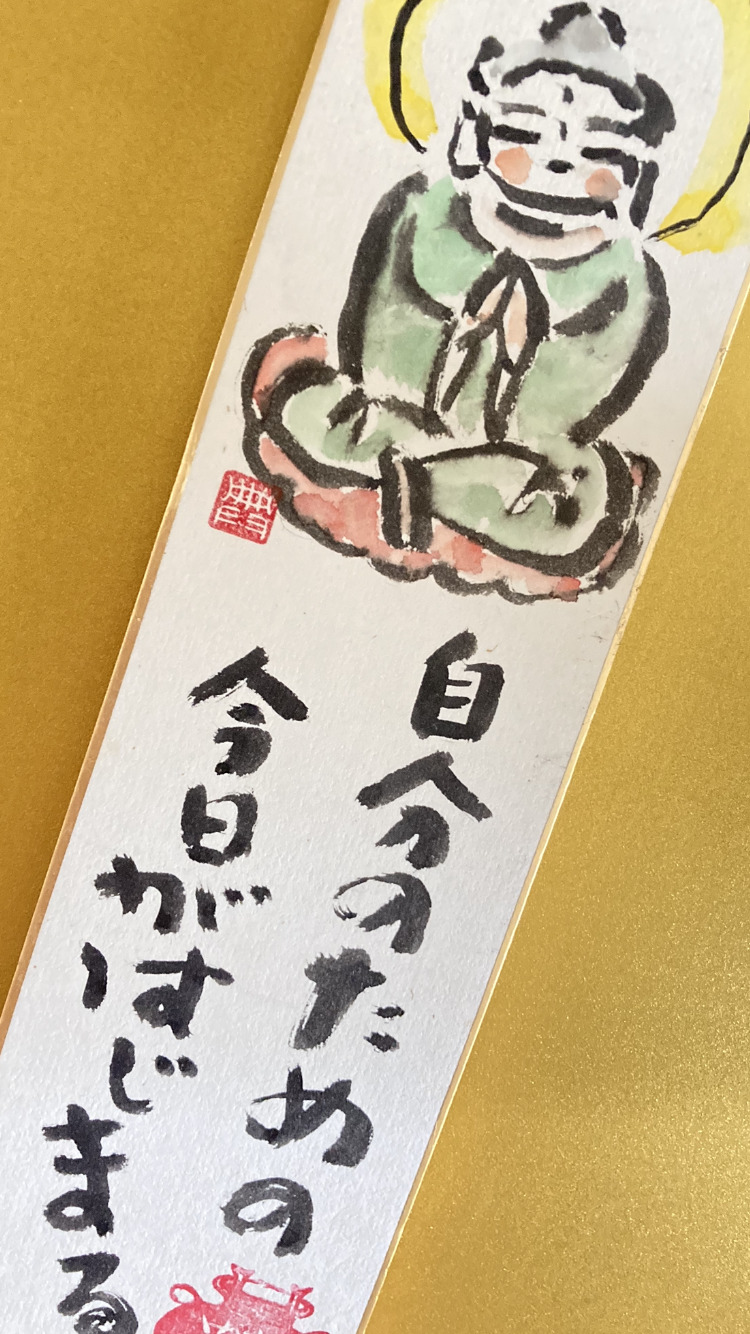 自分のための
今日がはじまる